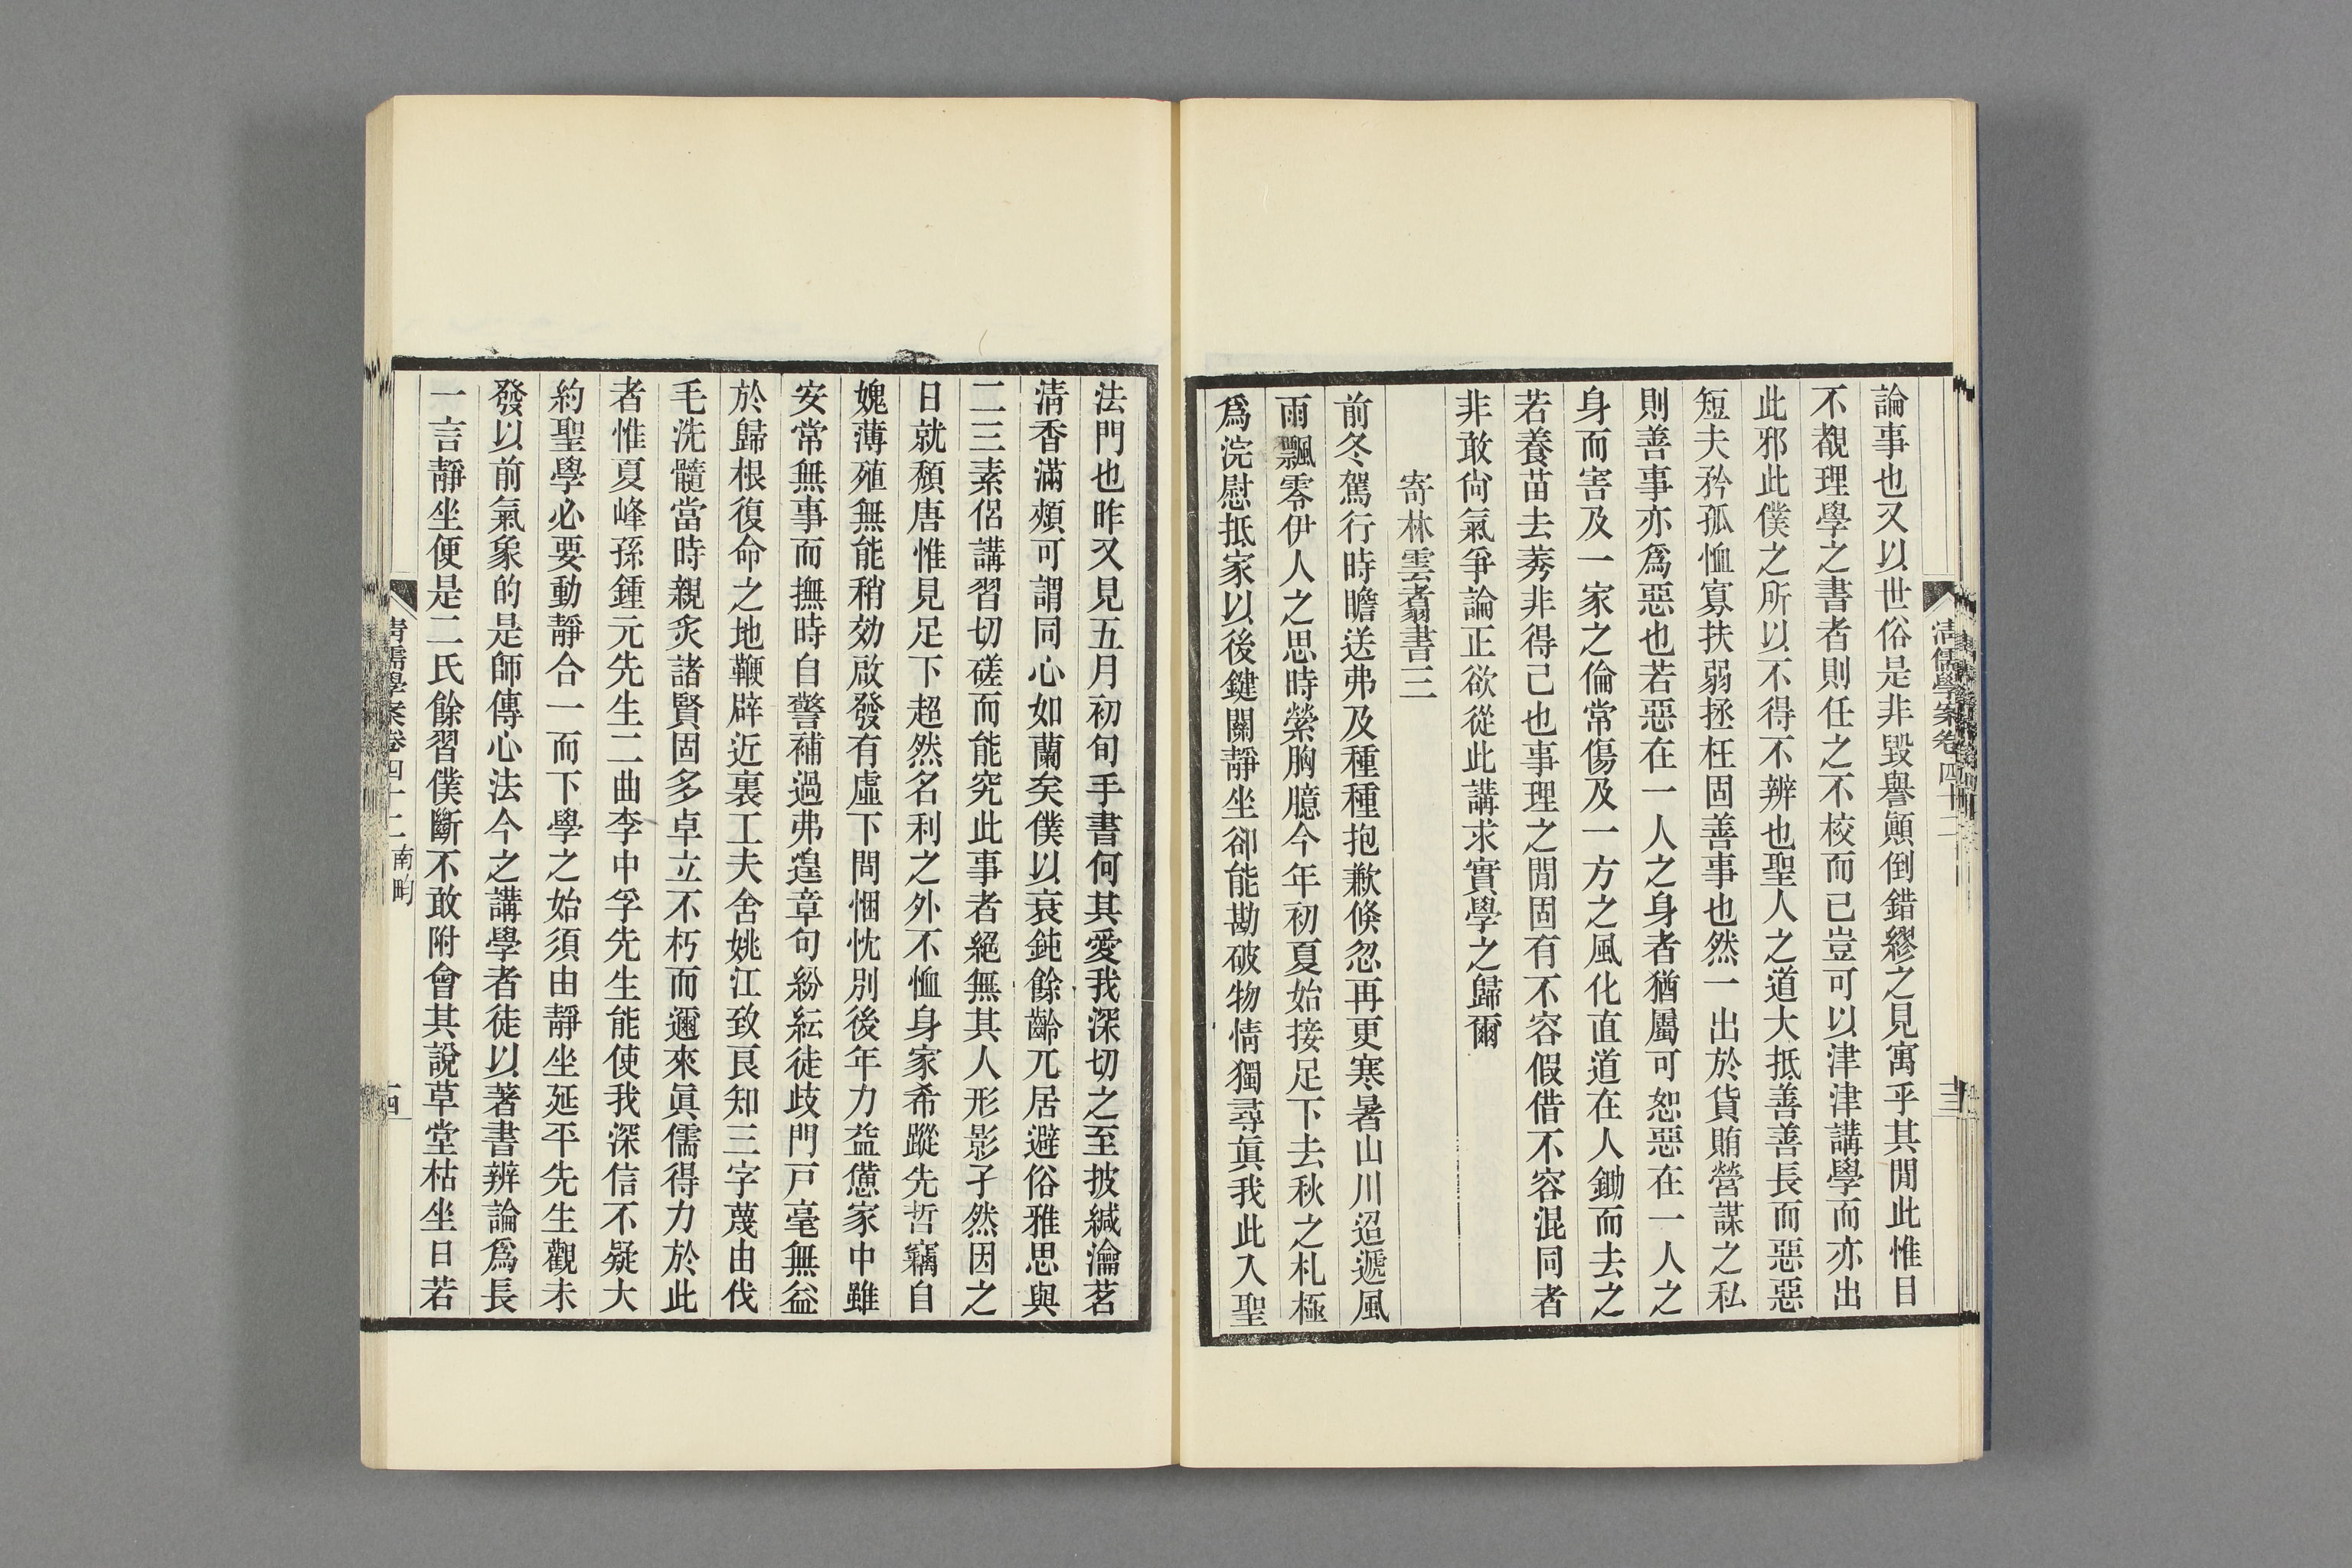 論事也又以世俗是非毀譽顚倒錯繆之見寓乎其閒此惟目
不覩理學之書者則任之不校而已豈可以津津講學而亦出
此邪此僕之所以不得不辨也聖人之道大抵善善長而惡惡
短夫矜孤恤寡扶弱拯枉固善事也然一出於貨賄營謀之私
則善事亦爲惡也若惡在一人之身者猶屬可恕惡在一人之
身而害及一家之倫常傷及一方之風化直道在人鋤而去之
若養苗去莠非得已也事理之閒固有不容假借不容混同者
非敢尙氣爭論正欲從此講求實學之歸爾
寄林雲翥書三
前冬駕行時瞻送弗及種種抱歉倏忽再更寒暑山川迢遞風
雨飄零伊人之思時縈胸臆今年初夏始接足下去秋之札極
爲浣慰抵家以後鍵關靜坐卻能勘破物情獨尋眞我此入聖
法門也昨又見五月初旬手書何其愛我深切之至披緘瀹茗
淸香滿頰可謂同心如蘭矣僕以衰鈍餘齡兀居避俗雅思與
二三素侶講習切磋而能究此事者絕無其人形影孑然因之
日就頹唐惟見足下超然名利之外不恤身家希蹤先哲竊自
媿薄殖無能稍効啟發有虛下問悃忱別後年力益憊家中雖
安常無事而撫時自警補過弗遑章句紛紜徒歧門戸毫無益
於歸根復命之地鞭辟近裏工夫舍姚江致良知三字蔑由伐
毛洗髓當時親炙諸賢固多卓立不朽而邇來眞儒得力於此
者惟夏峰孫鍾元先生二曲李中孚先生能使我深信不疑大
約聖學必要動靜合一而下學之始須由靜坐延平先生觀未
發以前氣象的是師傳心法今之講學者徒以著書辨論爲長
一言靜坐便是二氏餘習僕斷不敢附會其說草堂枯坐日若
淸儒學案卷四十二
十三
淸儒學案卷四十二 南畇
十四